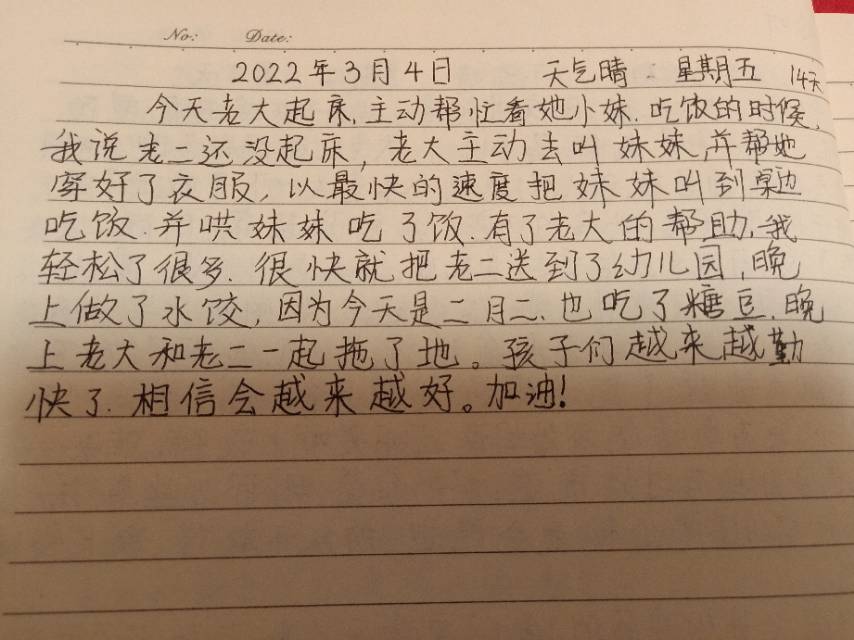 No: Date:
2022年3月4日 天气晴 星期五 14天
今天老大起床,主动帮忙看她小妹.吃饭的时候,
我说老二还没起床,老大主动去叫妹妹,并帮她
穿好了衣服,以最快的速度把妹妹叫到桌边
吃饭.并哄妹妹吃了饭.有了老大的帮助,我
轻松了很多.很快就把老二送到了幼儿园,晚
上做了水饺,因为今天是二月二.也吃了糖豆.晚
上老大和老二一起拖了地。孩子们越来越勤
快了.相信会越来越好。加油!